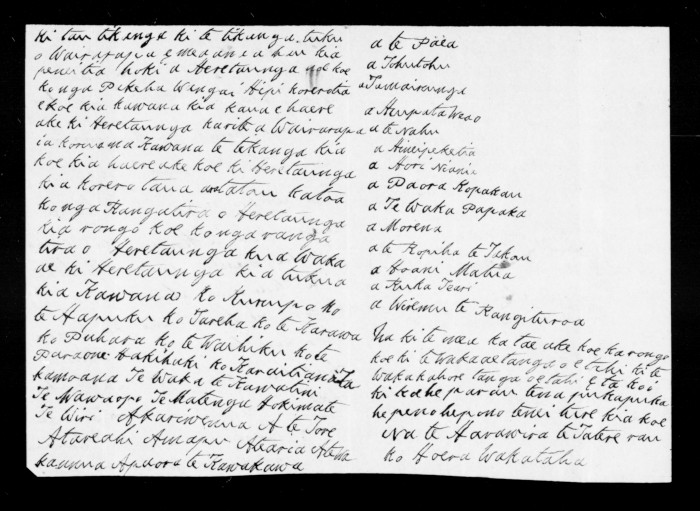 ki tau tikanga ki te tikanga tuku
o Wairarapa e mea ana a hau kia
peneitia hoki a Heretaunga
ko nga Pakeha Wangai Hipi korerotia
e koe kia kawana kia kaua e haere
ake ki Heretaunga karite a Wairarapa
ia koe ma Kawana te tikanga kia
koe kia haere ake koe ki Heretaunga
kia korero taua tatou katoa
ko nga Rangatira o Heretaunga
kia rongo koe ko nga ranga
tira o Heretaunga kua waka
ae ki Heretaunga kia tukua
kia Kawana ko Kurupo ko
te Hapuku ko Tareha ko te Karawa
ko Puhara ko te Waihiku ko te
Paraone Hakihuki ko Karaitiana Ta
kamoana Te Waka te Kawatini
Te Wawaropo Te Matenga Hokimate
Te Wiri Akariwenua A te Tore
Atareahi Amapu Ataria Atewa
kaunua Apaora te Kawakawa
a te Paea
a Tohutohu
a Tamairunga
a Herepata Weao
a te Nahu
a Hineipeketia
a Hori Niania
a Paora Kopakau
a Te Waka Papaka
a Morena
a te Kopiha te Takou
a Hoani Matua
a Karka Teari
a Wiremu te Rangituroa
Na ki te mea ka tae ake koe ka rongo
koe ki te wakaaetanga o etahi ki te
wakakahore tanga o etahi E ta koi
ki ka he parau tena pukapuka
he pono he pono tenei tire kia koe
Na te Harawira te Tatere rau
ko Hoera Wakataha